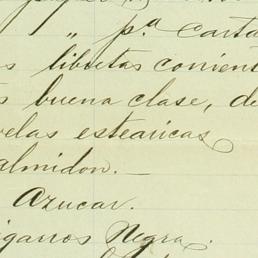 " p.ª carta
libretas corrient
buena clase, de
velas estearicas
almidon. —
Azucar.
igarros Negra.